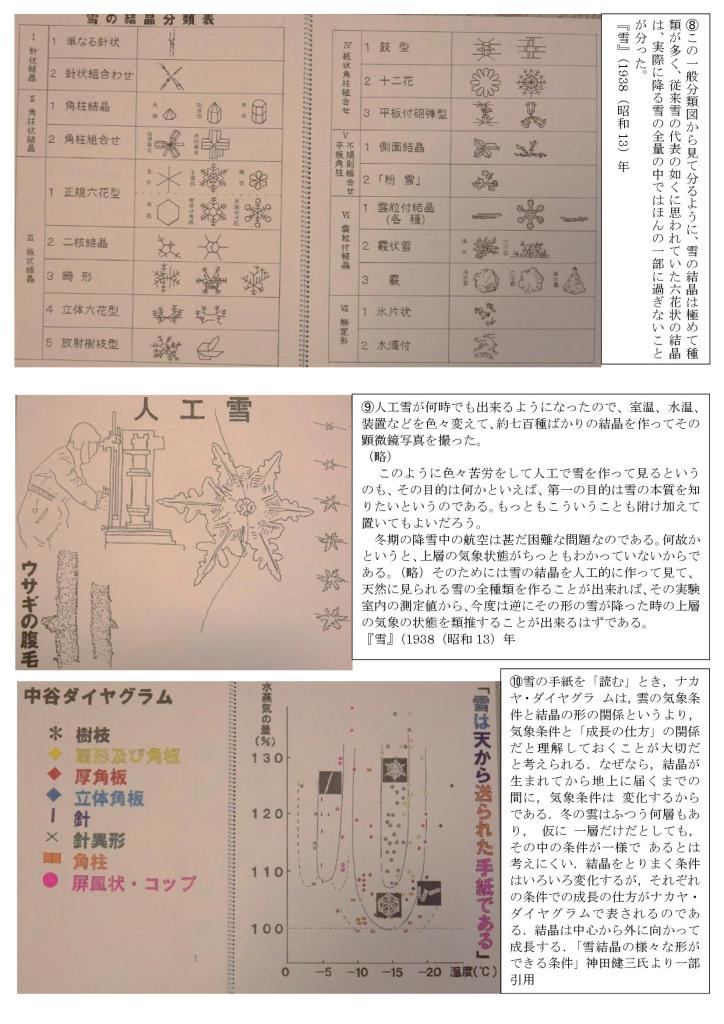 雪の結晶分類表
Ⅰ 針状結晶
1 単なる針状
2 針状組合わせ
Ⅱ 角柱状結晶
1 角柱結晶
2 角柱組合せ
Ⅲ 板状結晶
1 正規六花型
2 二核結晶
3 畸形
4 立体六花型
5 放射樹枝型
Ⅳ 板状角柱組合せ
1 鼓型
2 十二花
3 平板付砲弾型
Ⅴ 不規則組合せ平板角柱
1 側面結晶
2 「粉雪」
Ⅵ 雲粒付結晶
1 雲粒付結晶
(各種)
2 霰状雪
3 霰
Ⅶ 無定形
1 氷片状
2 水滴付
⑧この一般分類図から見て分るように、雪の結晶は極めて種
類が多く、従来雪の代表の如くに思われていた六花状の結晶
は、実際に降る雪の全量の中ではほんの一部に過ぎないこと
が分った。
『雪』(1938(昭和13)年
人工雪
ウサギの腹毛
⑨人工雪が何時でも出来るようになったので、室温、水温、
装置などを色々変えて、約七百種ばかりの結晶を作ってその
顕微鏡写真を撮った。
(略)
このように色々苦労をして人工で雪を作って見るという
のも、その目的は何かといえば、第一の目的は雪の本質を知
りたいというのである。もっともこういうことも附け加えて
置いてもよいだろう。
冬期の降雪中の航空は甚だ困難な問題なのである。何故か
というと、上層の気象状態がちっともわかっていないからで
ある。(略)そのためには雪の結晶を人工的に作って見て、
天然に見られる雪の全種類を作ることが出来れば、その実験
室内の測定値から、今度は逆にその形の雪が降った時の上層
の気象の状態を類推することが出来るはずである。
『雪』(1938(昭和13)年
中谷ダイヤグラム
樹枝
扇形及び角板
厚角板
立体角板
針
針異形
角柱
屏風状・コップ
水蒸気の量(%)
130
120
110
100
0 −5 −10 −15 −20 温度(℃)
「雪は天から送られた手紙である」
⑩雪の手紙を「読む」とき，ナカ
ヤ・ダイヤグラ ムは，雲の気象条
件と結晶の形の関係というより，
気象条件と「成長の仕方」の関係
だと理解しておくことが大切だ
と考えられる．なぜなら，結晶が
生まれてから地上に届くまでの
間に，気象条件は 変化するから
である．冬の雲はふつう何層もあ
り， 仮に 一層だけだとしても，
その中の条件が一様で あるとは
考えにくい．結晶をとりまく条件
はいろいろ変化するが，それぞれ
の条件での成長の仕方がナカヤ・
ダイヤグラムで表されるのであ
る．結晶は中心から外に向かって
成長する．「雪結晶の様々な形が
できる条件」神田健三氏より一部
引用